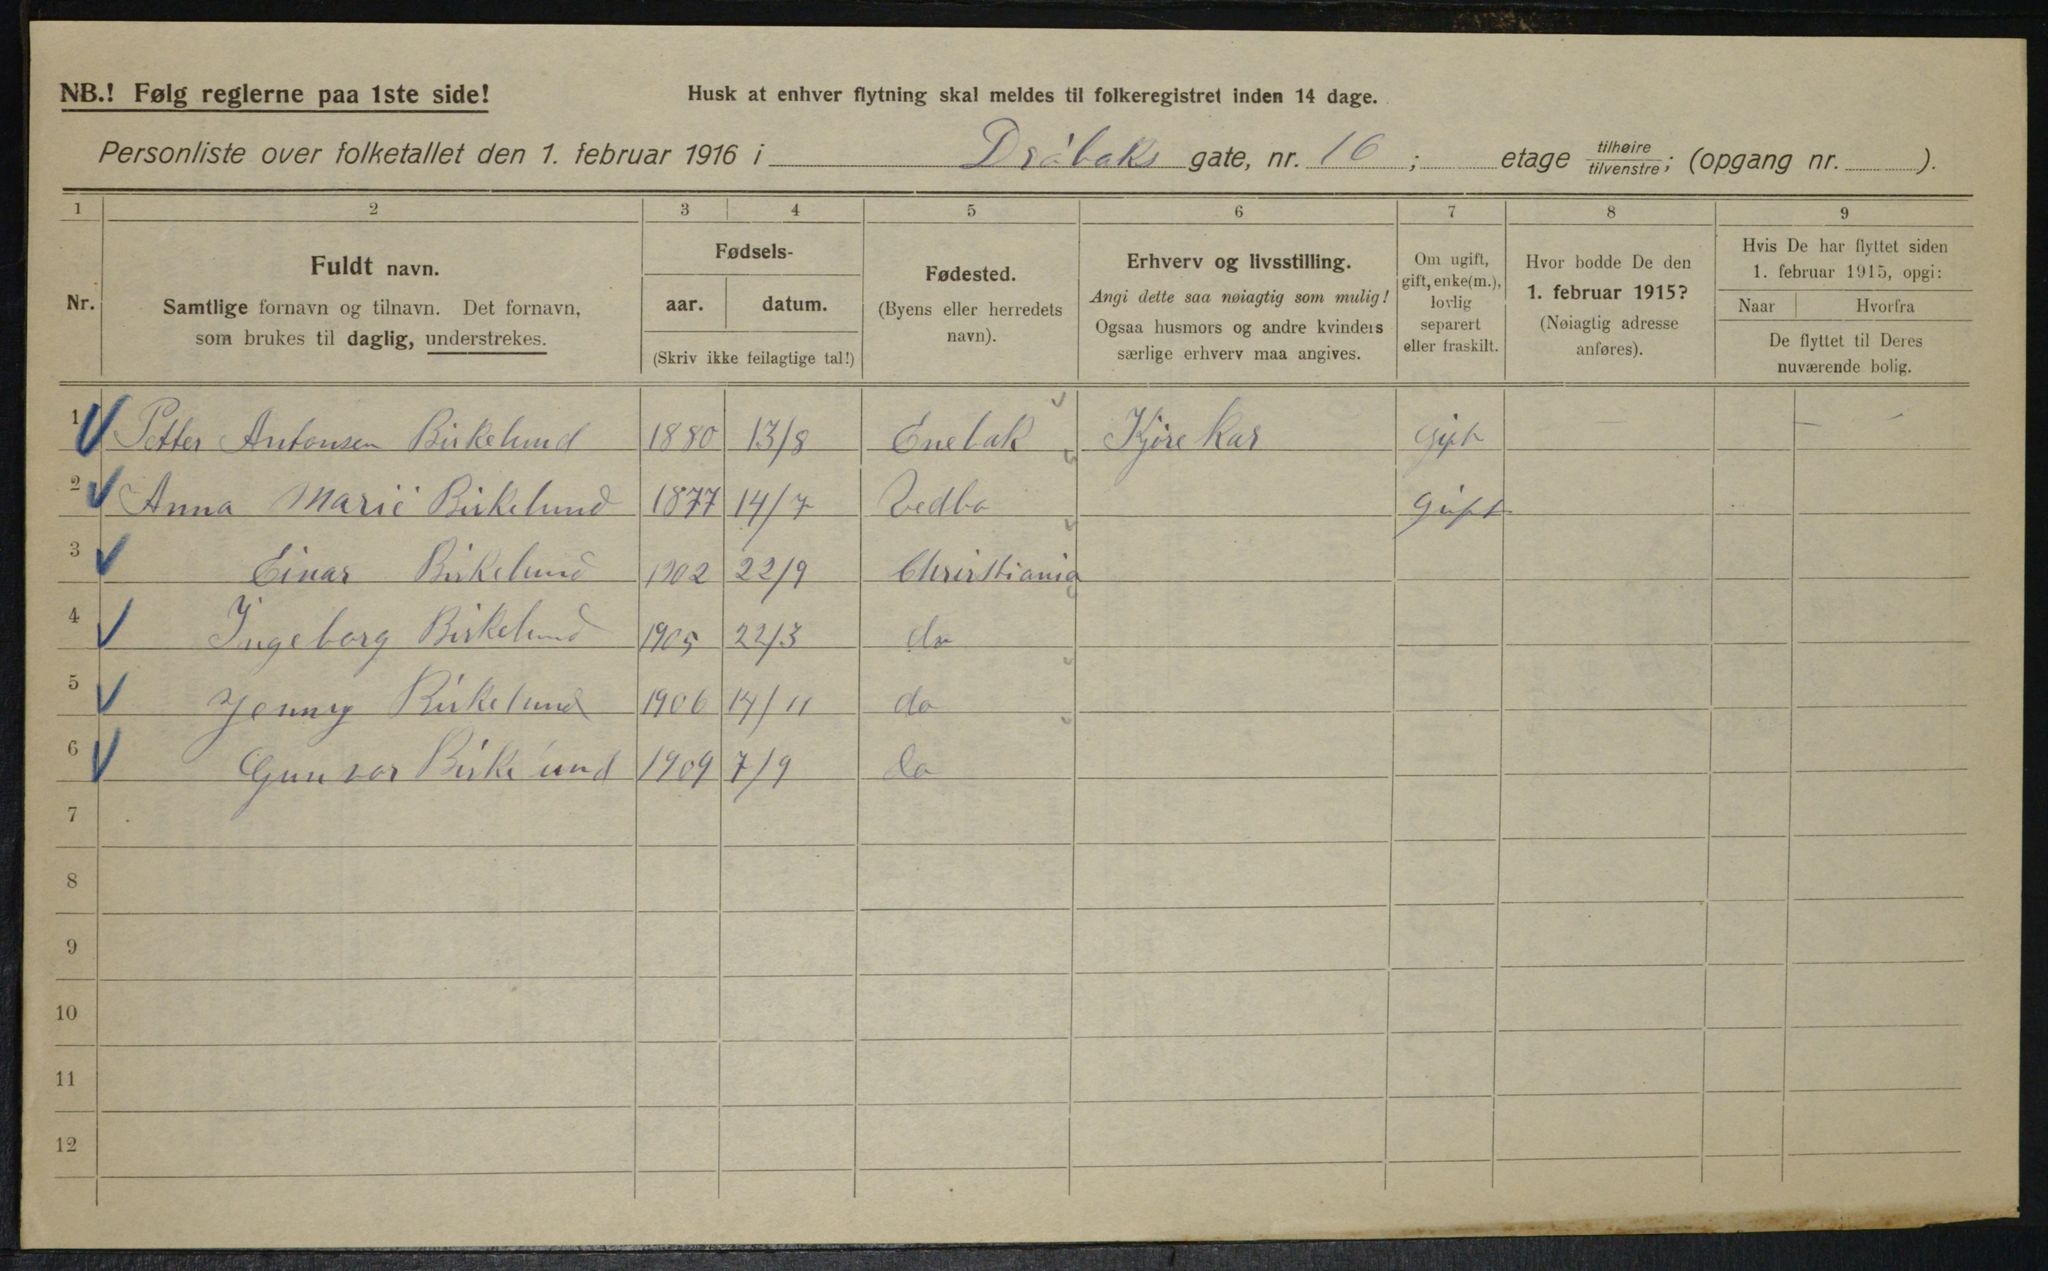 NB.! Følg reglerne paa 1ste side!
Husk at enhver flytning skal meldes til folkeregistret inden 14 dage.
Personliste over folketallet den 1. februar 1916 i Drøbaks gate, nr. 16; etage tilhøire/tilvenstre; (opgang nr. ).
1 2 3 4 5 6 7 8 9
Nr.
Fuldt navn.
Samtlige fornavn og tilnavn. Det fornavn,
som brukes til daglig, understrekes.
Fødsels-
aar. datum.
(Skriv ikke feilagtige tal!)
Fødested.
(Byens eller herredets
navn).
Erhverv og livsstilling.
Angi dette saa nøiagtig som mulig!
Ogsaa husmors og andre kvinders
særlige erhverv maa angives.
Om ugift,
gift, enke(m.),
lovlig
separert
eller fraskilt.
Hvor bodde De den
1. februar 1915?
(Nøiagtig adresse
anføres).
Hvis De har flyttet siden
1. februar 1915, opgi:
Naar Hvorfra
De flyttet til Deres
nuværende bolig.
1 Petter Antonsen Birkelund 1880 13/8 Enebak Kjørekar Gift — — —
2 Anna Marie Birkelund 1877 14/7 Vedbo Gift
3 Einar Birkelund 1902 22/9 Christiania
4 Ingeborg Birkelund 1905 22/3 do
5 Jenny Birkelund 1906 14/11 do
6 Gunvor Birkelund 1909 7/9 do
7
8
9
10
11
12